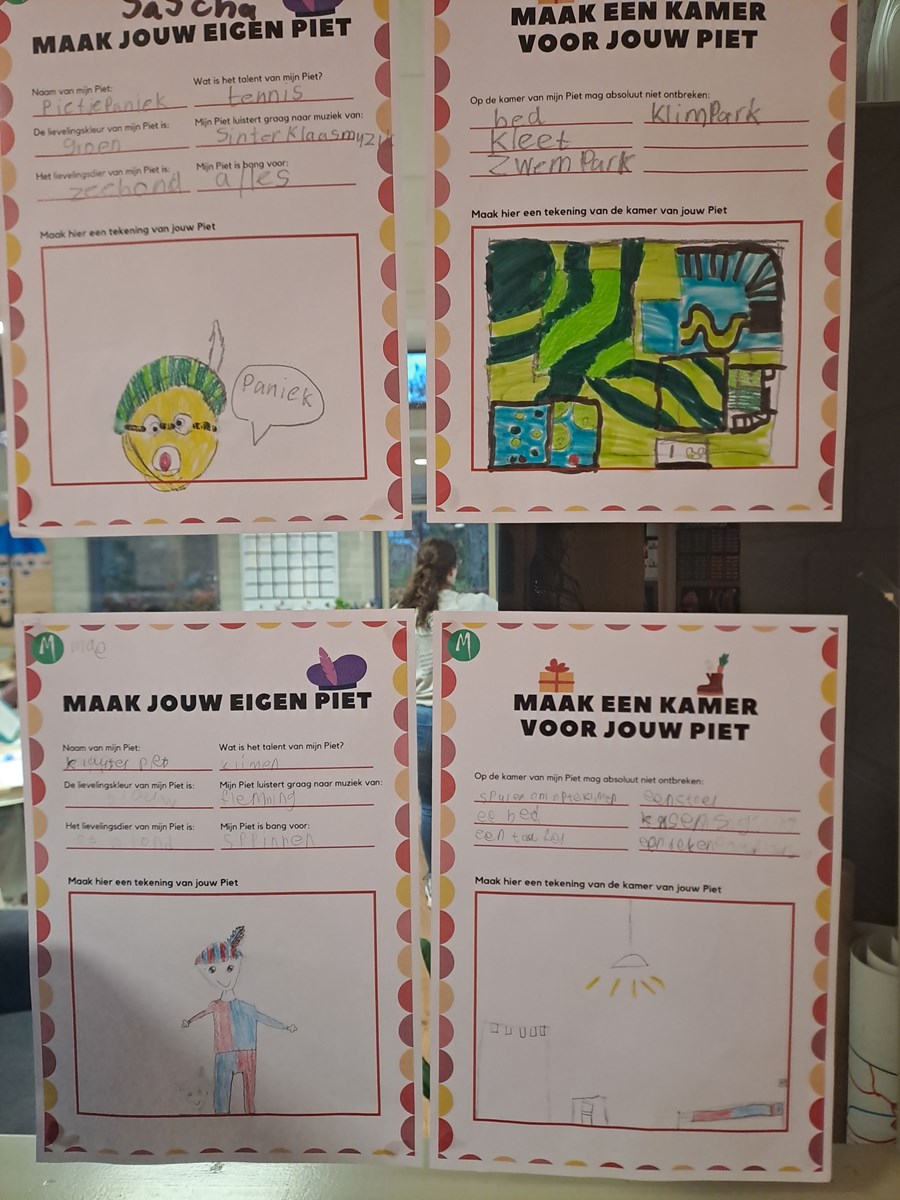 Sascha
MAAK JOUW EIGEN PIET
Naam van mijn Piet:
PietjePaniek
Wat is het talent van mijn Piet?
tennis
De lievelingskleur van mijn Piet is:
groen
Mijn Piet luistert graag naar muziek van:
Sinterklaasmuzyk
Het lievelingsdier van mijn Piet is:
zeehond
Mijn Piet is bang voor:
alles
Maak hier een tekening van jouw Piet
Paniek
MAAK EEN KAMER
VOOR JOUW PIET
Op de kamer van mijn Piet mag absoluut niet ontbreken:
bed
KlimPark
kleet
ZwemPark
Maak hier een tekening van de kamer van jouw Piet
M
mae
MAAK JOUW EIGEN PIET
Naam van mijn Piet:
klauter piet
Wat is het talent van mijn Piet?
klimen
De lievelingskleur van mijn Piet is:
Mijn Piet luistert graag naar muziek van:
flemming
Het lievelingsdier van mijn Piet is:
Mijn Piet is bang voor:
spinnen
Maak hier een tekening van jouw Piet
M
MAAK EEN KAMER
VOOR JOUW PIET
Op de kamer van mijn Piet mag absoluut niet ontbreken:
een stoel
ee bed
een
Maak hier een tekening van de kamer van jouw Piet